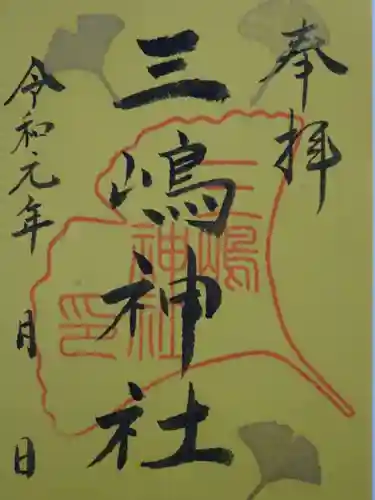 奉拝
三嶋神社
三嶋
神社
印
令和元年 月 日